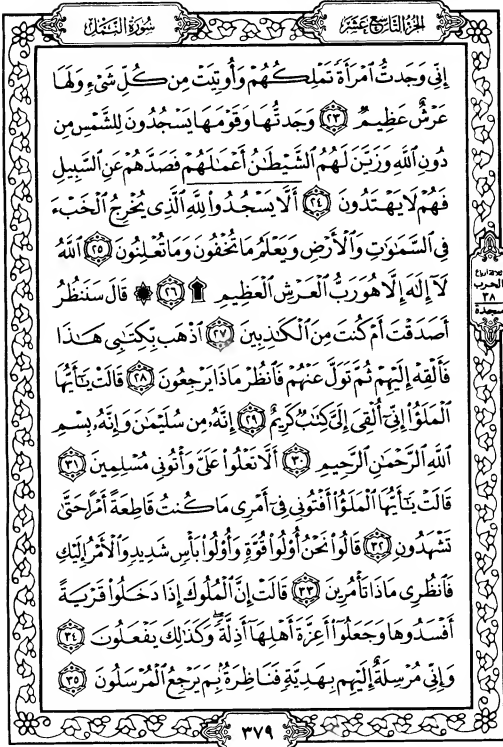 سُورَةُ النَّمْلِ
الجُزْءُ التَّاسِعَ عَشَرَ
إِنِّي وَجَدتُّ ٱمْرَأَةً تَمْلِكُهُمْ وَأُوتِيَتْ مِن كُلِّ شَىْءٍ وَلَهَا
عَرْشٌ عَظِيمٌ ٢٣ وَجَدتُّهَا وَقَوْمَهَا يَسْجُدُونَ لِلشَّمْسِ مِن
دُونِ ٱللَّهِ وَزَيَّنَ لَهُمُ ٱلشَّيْطَٰنُ أَعْمَٰلَهُمْ فَصَدَّهُمْ عَنِ ٱلسَّبِيلِ
فَهُمْ لَا يَهْتَدُونَ ٢٤ أَلَّا يَسْجُدُوا۟ لِلَّهِ ٱلَّذِى يُخْرِجُ ٱلْخَبْءَ
فِى ٱلسَّمَٰوَٰتِ وَٱلْأَرْضِ وَيَعْلَمُ مَا تُخْفُونَ وَمَا تُعْلِنُونَ ٢٥ ٱللَّهُ
لَآ إِلَٰهَ إِلَّا هُوَ رَبُّ ٱلْعَرْشِ ٱلْعَظِيمِ ۩ ٢٦ ۞ قَالَ سَنَنظُرُ
أَصَدَقْتَ أَمْ كُنتَ مِنَ ٱلْكَٰذِبِينَ ٢٧ ٱذْهَب بِّكِتَٰبِى هَٰذَا
فَأَلْقِهْ إِلَيْهِمْ ثُمَّ تَوَلَّ عَنْهُمْ فَٱنظُرْ مَاذَا يَرْجِعُونَ ٢٨ قَالَتْ يَٰٓأَيُّهَا
ٱلْمَلَؤُا۟ إِنِّىٓ أُلْقِىَ إِلَىَّ كِتَٰبٌ كَرِيمٌ ٢٩ إِنَّهُۥ مِن سُلَيْمَٰنَ وَإِنَّهُۥ بِسْمِ
ٱللَّهِ ٱلرَّحْمَٰنِ ٱلرَّحِيمِ ٣٠ أَلَّا تَعْلُوا۟ عَلَىَّ وَأْتُونِى مُسْلِمِينَ ٣١
قَالَتْ يَٰٓأَيُّهَا ٱلْمَلَؤُا۟ أَفْتُونِى فِىٓ أَمْرِى مَا كُنتُ قَاطِعَةً أَمْرًا حَتَّىٰ
تَشْهَدُونِ ٣٢ قَالُوا۟ نَحْنُ أُو۟لُوا۟ قُوَّةٍ وَأُو۟لُوا۟ بَأْسٍ شَدِيدٍ وَٱلْأَمْرُ إِلَيْكِ
فَٱنظُرِى مَاذَا تَأْمُرِينَ ٣٣ قَالَتْ إِنَّ ٱلْمُلُوكَ إِذَا دَخَلُوا۟ قَرْيَةً
أَفْسَدُوهَا وَجَعَلُوٓا۟ أَعِزَّةَ أَهْلِهَآ أَذِلَّةً ۖ وَكَذَٰلِكَ يَفْعَلُونَ ٣٤
وَإِنِّى مُرْسِلَةٌ إِلَيْهِم بِهَدِيَّةٍ فَنَاظِرَةٌۢ بِمَ يَرْجِعُ ٱلْمُرْسَلُونَ ٣٥
٣٧٩
ثلاثة أرباع
الحزب
٣٨
سجدة